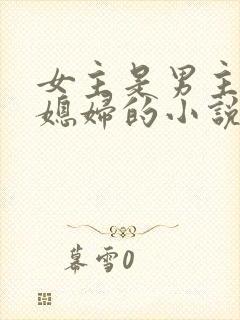 女主是男主
媳婦的小說
暮雪0